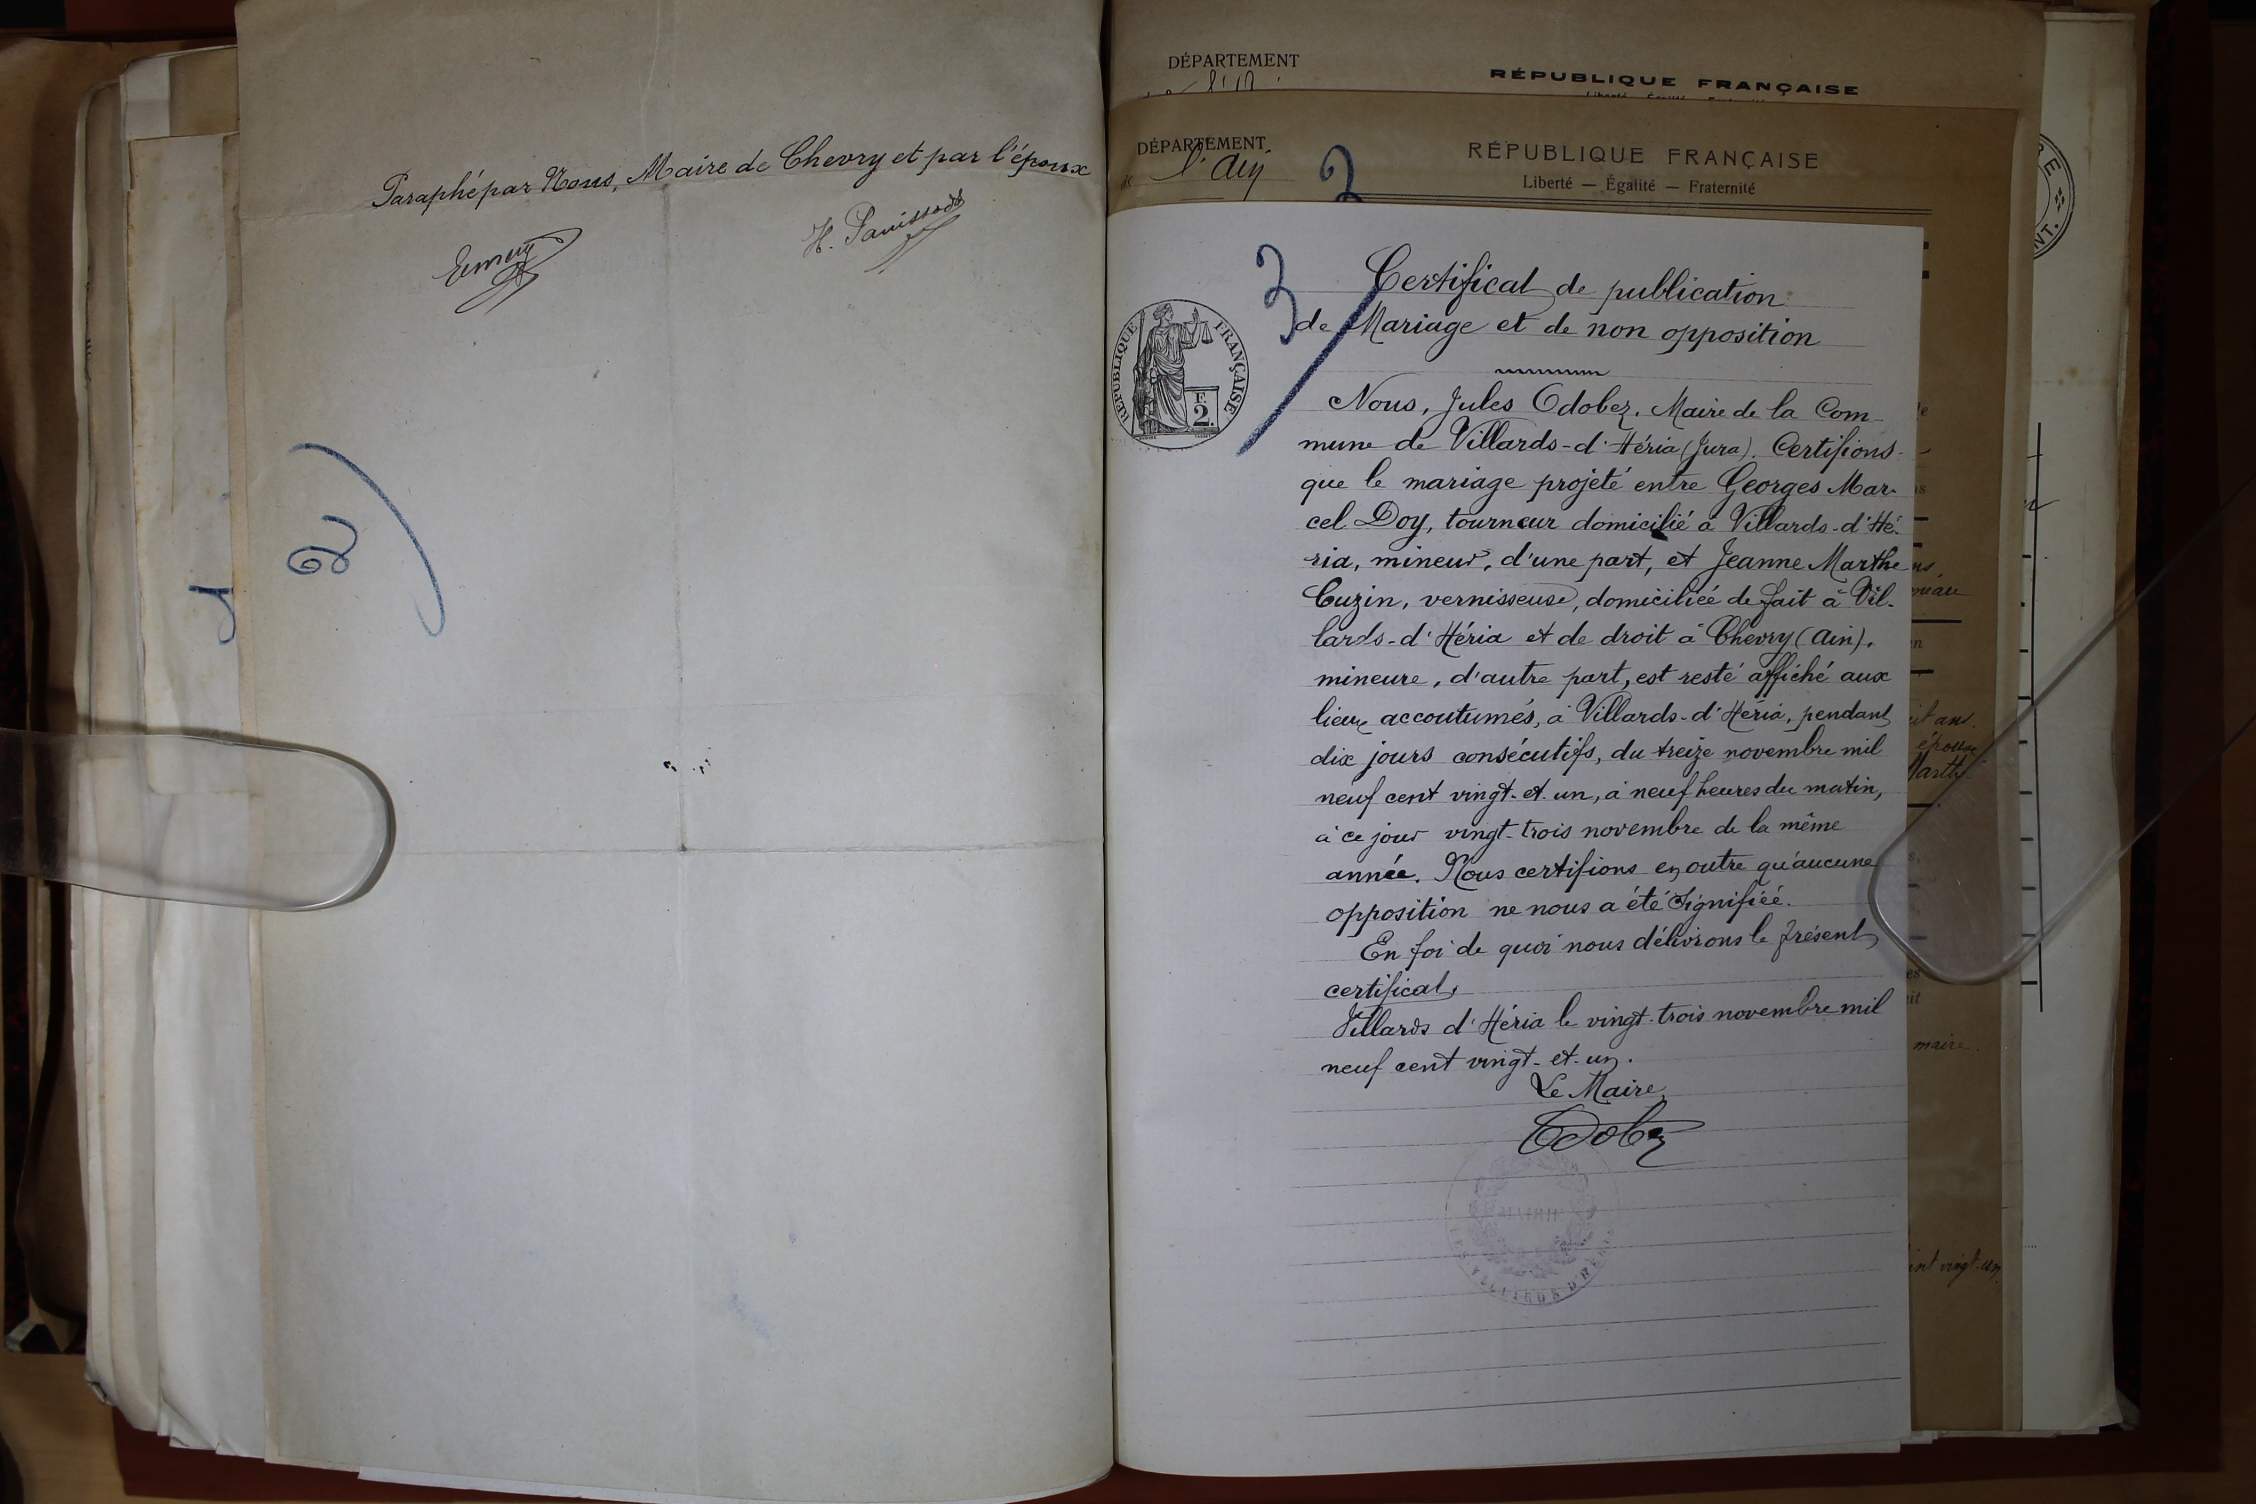 Paraphé par Nous, Maire de Chevry et par l'époux
Emery
H. Panissod
2
DÉPARTEMENT
RÉPUBLIQUE FRANÇAISE
DÉPARTEMENT
de l'Ain
2
RÉPUBLIQUE FRANÇAISE
Liberté — Égalité — Fraternité
3
RÉPUBLIQUE FRANÇAISE
F.
2.
Certificat de publication
de Mariage et de non opposition
Nous, Jules Odobez, Maire de la Com-
mune de Villards-d'Héria (Jura). Certifions
que le mariage projeté entre Georges Mar-
cel Doy, tourneur domicilié à Villards-d'Hé-
ria, mineur, d'une part, et Jeanne Marthe
Cuzin, vernisseuse, domiciliée de fait à Vil-
lards-d'Héria et de droit à Chevry (Ain),
mineure, d'autre part, est resté affiché aux
lieux accoutumés, à Villards-d'Héria, pendant
dix jours consécutifs, du treize novembre mil
neuf cent vingt-et-un, à neuf heures du matin,
à ce jour vingt-trois novembre de la même
année. Nous certifions en outre qu'aucune
opposition ne nous a été signifiée.
En foi de quoi nous délivrons le présent
certificat,
Villards d'Héria le vingt-trois novembre mil
neuf cent vingt-et-un.
Le Maire,
Odobez
maire.
vingt-un